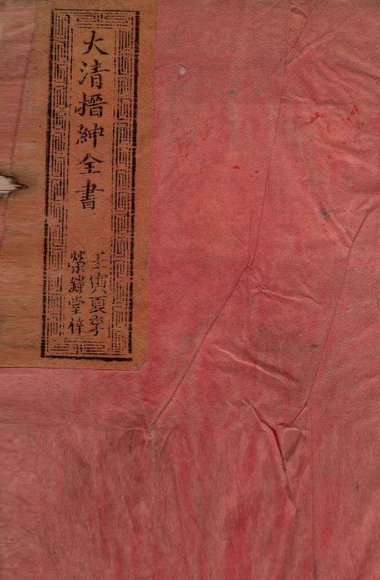 大清搢紳全書
壬寅夏季
榮錄堂梓